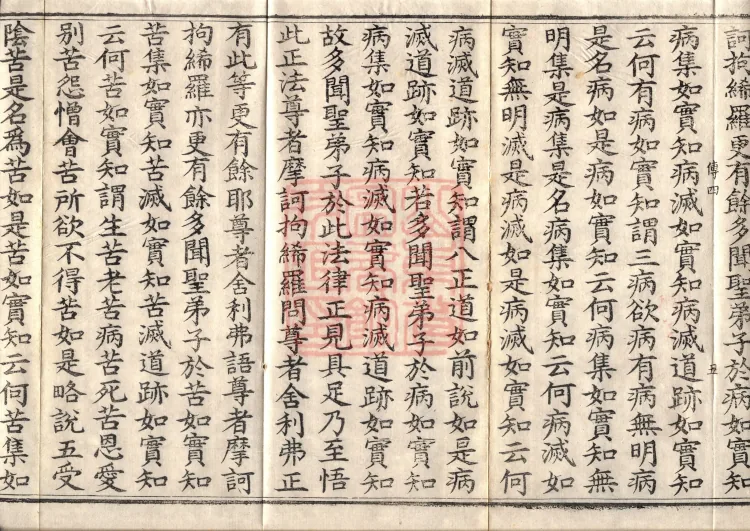 訶拘絺羅更有餘多聞聖弟子於病如實知
病集如實知病滅如實知病滅道跡如實知
云何有病如實知謂三病欲病有病無明病
是名病如是病如實知云何病集如實知無
明集是病集是名病集如實知云何病滅如
實知無明滅是病滅如是病滅如實知云何
病滅道跡如實知謂八正道如前說如是病
滅道跡如實知若多聞聖弟子於病如實知
病集如實知病滅如實知病滅道跡如實知
故多聞聖弟子於此法律正見具足乃至悟
此正法尊者摩訶拘絺羅問尊者舍利弗正
有此等更有餘耶尊者舍利弗語尊者摩訶
拘絺羅亦更有餘多聞聖弟子於苦如實知
苦集如實知苦滅如實知苦滅道跡如實知
云何苦如實知謂生苦老苦病苦死苦恩愛
別苦怨憎會苦所欲不得苦如是略說五受
陰苦是名為苦如是苦如實知云何苦集如
傅四
五